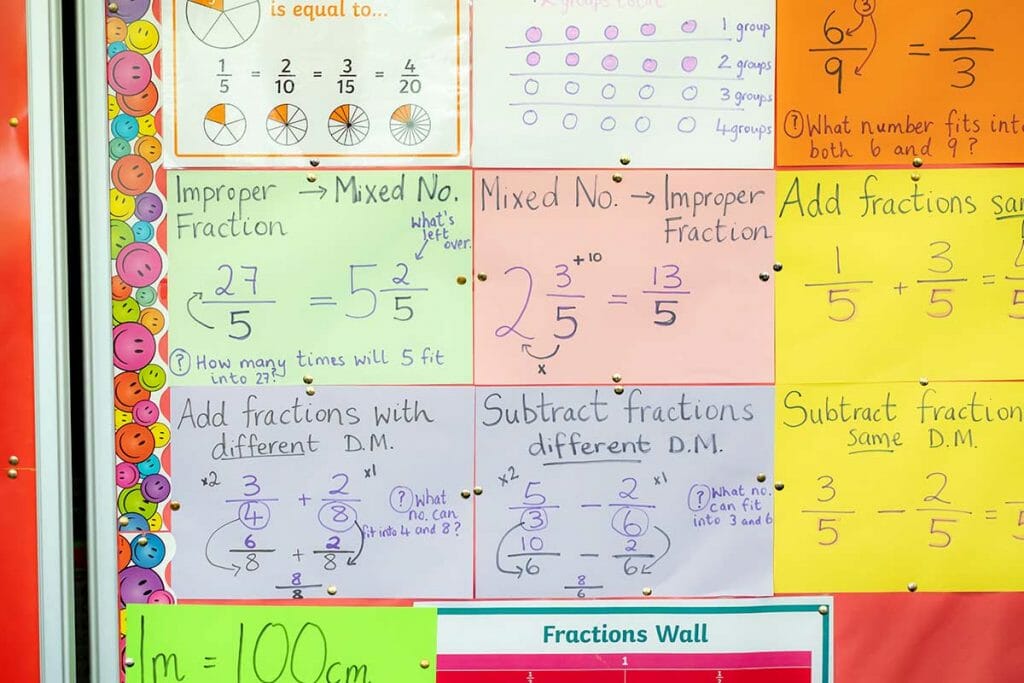 is equal to...
1/5 = 2/10 = 3/15 = 4/20
1 group
2 groups
3 groups
4 groups
3
6/9 = 2/3
? What number fits into
both 6 and 9?
Improper → Mixed No.
Fraction
what's
left
over.
27/5 = 5 2/5
? How many times will 5 fit
into 27?
Mixed No. → Improper
Fraction
2 3/5 +10 = 13/5
x
Add fractions
1/5 + 3/5 =
Add fractions with
different D.M.
x2 3/4 + 2/8 x1
? What
no. can
fit into 4 and 8?
6/8 + 2/8
8/8
Subtract fractions
different D.M.
x2 5/3 - 2/6 x1
? What no.
can fit
into 3 and 6
10/6 - 2/6
8/6
Subtract fraction
same D.M.
3/5 - 2/5 =
1m = 100cm.
Fractions Wall
1
1/2 1/2